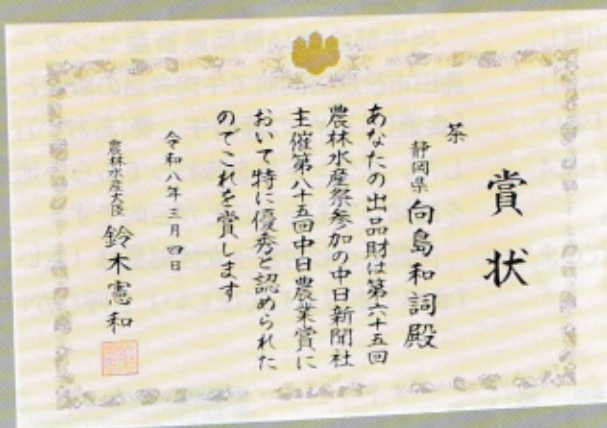 賞状
茶
静岡県 向島和詞殿
あなたの出品財は第六十五回
農林水産祭参加の中日新聞社
主催第八十五回中日農業賞に
おいて特に優秀と認められた
のでこれを賞します
令和八年三月四日
農林水産大臣 鈴木憲和